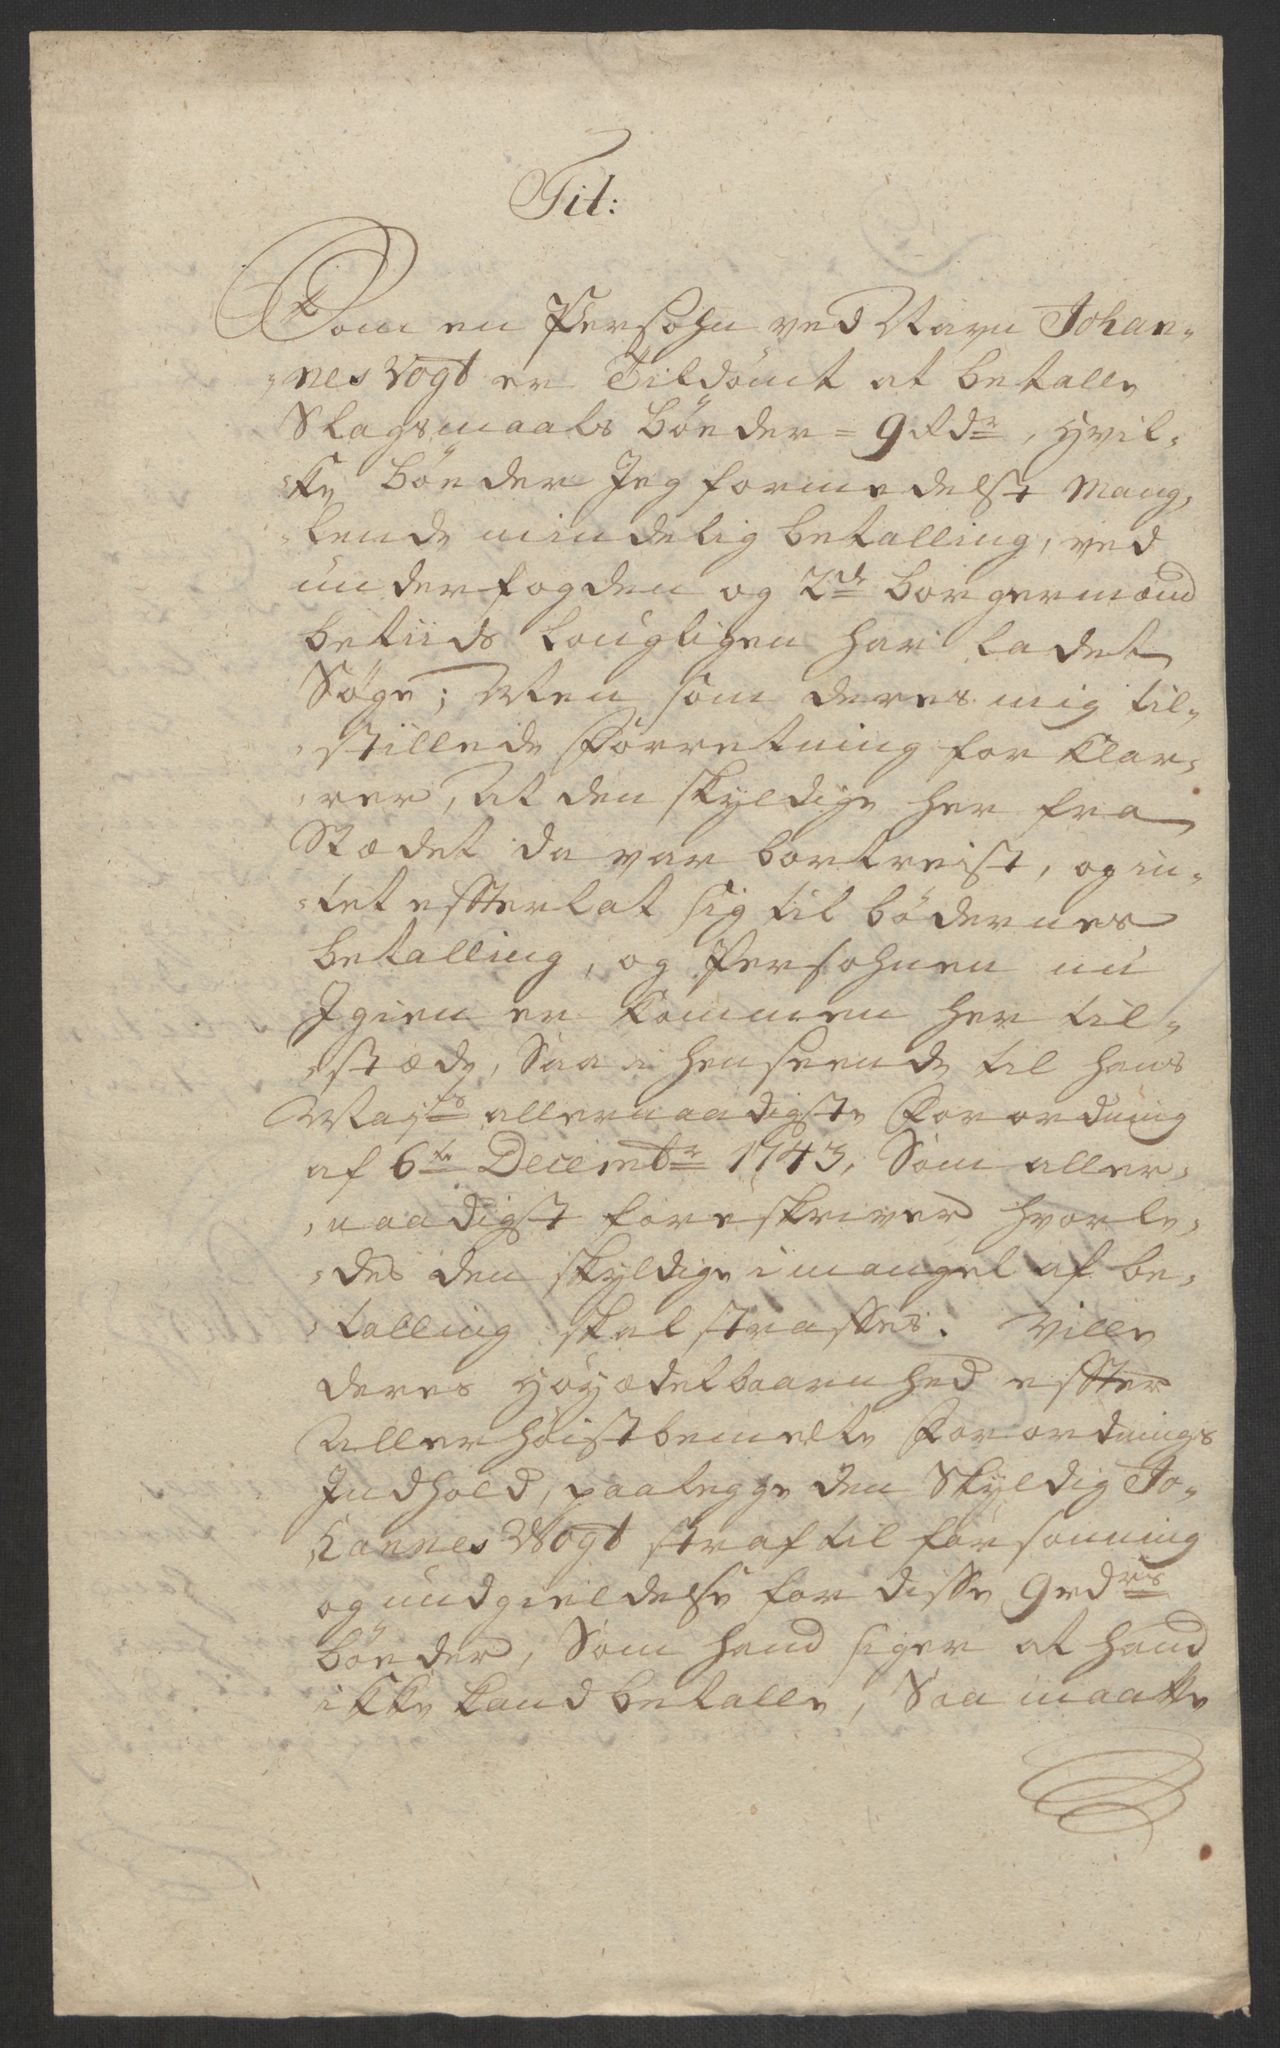 Tit:
Som en Persohn ved Navn Johan-
-nes Vogt er Tildömt at betalle
Slagsmaals böeder = 9 Rdr, hvil-
-ke böeder Jeg formedelst Mang-
-lende mindelig betalling, ved
underfogden og 2de borgermænd
betiids lougligen har ladet
Søge; Men som deres mig til-
-stillede Forretning for klar-
-rer, At den skyldige her fra
Stædet da var bortreist, og in-
-tet efterlat sig til bödernes
betalling, og Persohnen nu
Igien er kommen her til-
-stæde, Saa i henseende til hans
Mayts allernaadigste Forordning
af 6te Decembr 1743, Som aller-
-naadigst foreskriver hvorle-
-des den skyldige i mangel af be-
-talling skal straffes. Ville
deres Høyædelbaarnhed efter
Allerhöistbemelte Forordnings
Indhold, paalegge den Skyldig Jo-
hannes Vogt straf til forsonning
og undgieldelse for disse 9 rdrs
böeder, Som hand siger at hand
ikke kand betalle, Saa maatte